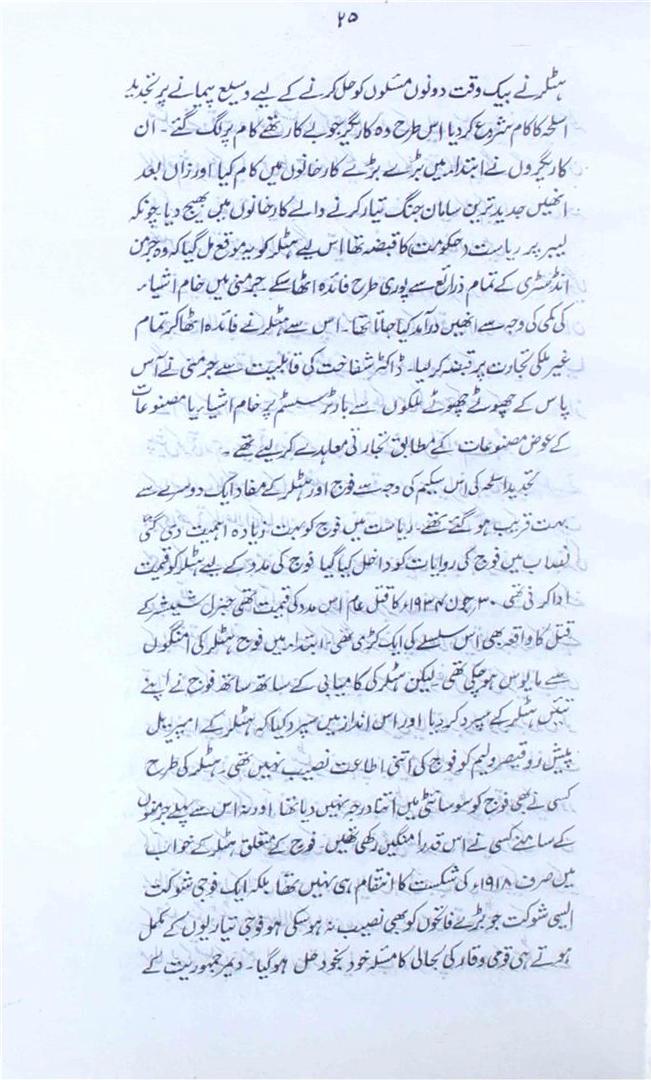 ۲۵
ہٹلر نے بیک وقت دونوں مسئلوں کو حل کرنے کے لیے وسیع پیمانے پر تجدید
اسلحہ کا کام شروع کر دیا اس طرح وہ کاریگر جو بے کار تھے کام پر لگ گئے ۔ ان
کاریگروں نے ابتداء میں بڑے بڑے کارخانوں میں کام کیا اور زاں بعد
انھیں جدید ترین سامان جنگ تیار کرنے والے کارخانوں میں بھیج دیا چونکہ
لیبر پر ریاست و حکومت کا قبضہ تھا اس لیے ہٹلر کو یہ موقع مل گیا کہ وہ جرمن
انڈسٹری کے تمام ذرائع سے پوری طرح فائدہ اٹھا سکے جرمنی میں خام اشیاء
کی کمی کی وجہ سے انھیں درآمد کیا جاتا تھا ۔ اس سے ہٹلر نے فائدہ اٹھا کر تمام
غیر ملکی تجارت پر قبضہ کر لیا ۔ ڈاکٹر شفاخت کی قابلیت سے جرمنی نے آس
پاس کے چھوٹے چھوٹے ملکوں سے بارٹر سسٹم پر خام اشیاء یا مصنوعات
کے عوض مصنوعات کے مطابق تجارتی معاہدے کر لیے تھے ۔
تجدید اسلحہ کی اس سکیم کی وجہ سے فوج اور ہٹلر کے مفاد ایک دوسرے سے
بہت قریب ہو گئے تھے ۔ ریاست میں فوج کو بہت زیادہ اہمیت دی گئی
نصاب میں فوج کی روایات کو داخل کیا گیا فوج کی مدد کے لیے ہٹلر کو قیمت
ادا کرنی تھی ۳۰ جون ۱۹۳۴ء کا قتل عام اس مدد کی قیمت تھی جنرل شلیشر کے
قتل کا واقعہ بھی اس سلسلے کی ایک کڑی تھی ۔ ابتداء میں فوج ہٹلر کی امنگوں
سے مایوس ہو چکی تھی لیکن ہٹلر کی کامیابی کے ساتھ ساتھ فوج نے اپنے
تئیں ہٹلر کے سپرد کر دیا اور اس انداز میں سپرد کیا کہ ہٹلر کے امپیریل
پیش رو قیصر ولیم کو فوج کی اتنی اطاعت نصیب نہیں تھی ۔ ہٹلر کی طرح
کسی نے بھی فوج کو سوسائٹی میں اتنا درجہ نہیں دیا تھا اور نہ اس سے پہلے جرمنوں
کے سامنے کسی نے اس قدر امنگیں رکھی تھیں ۔ فوج کے متعلق ہٹلر کے خواب
میں صرف ۱۹۱۸ء کی شکست کا انتقام ہی نہیں تھا بلکہ ایک فوجی شوکت
ایسی شوکت جو بڑے فاتحوں کو بھی نصیب نہ ہو سکی ہو فوجی تیاریوں کے مکمل
ہوتے ہی قومی وقار کی بحالی کا مسئلہ خود بخود حل ہو گیا ۔ ویمر جمہوریت کے